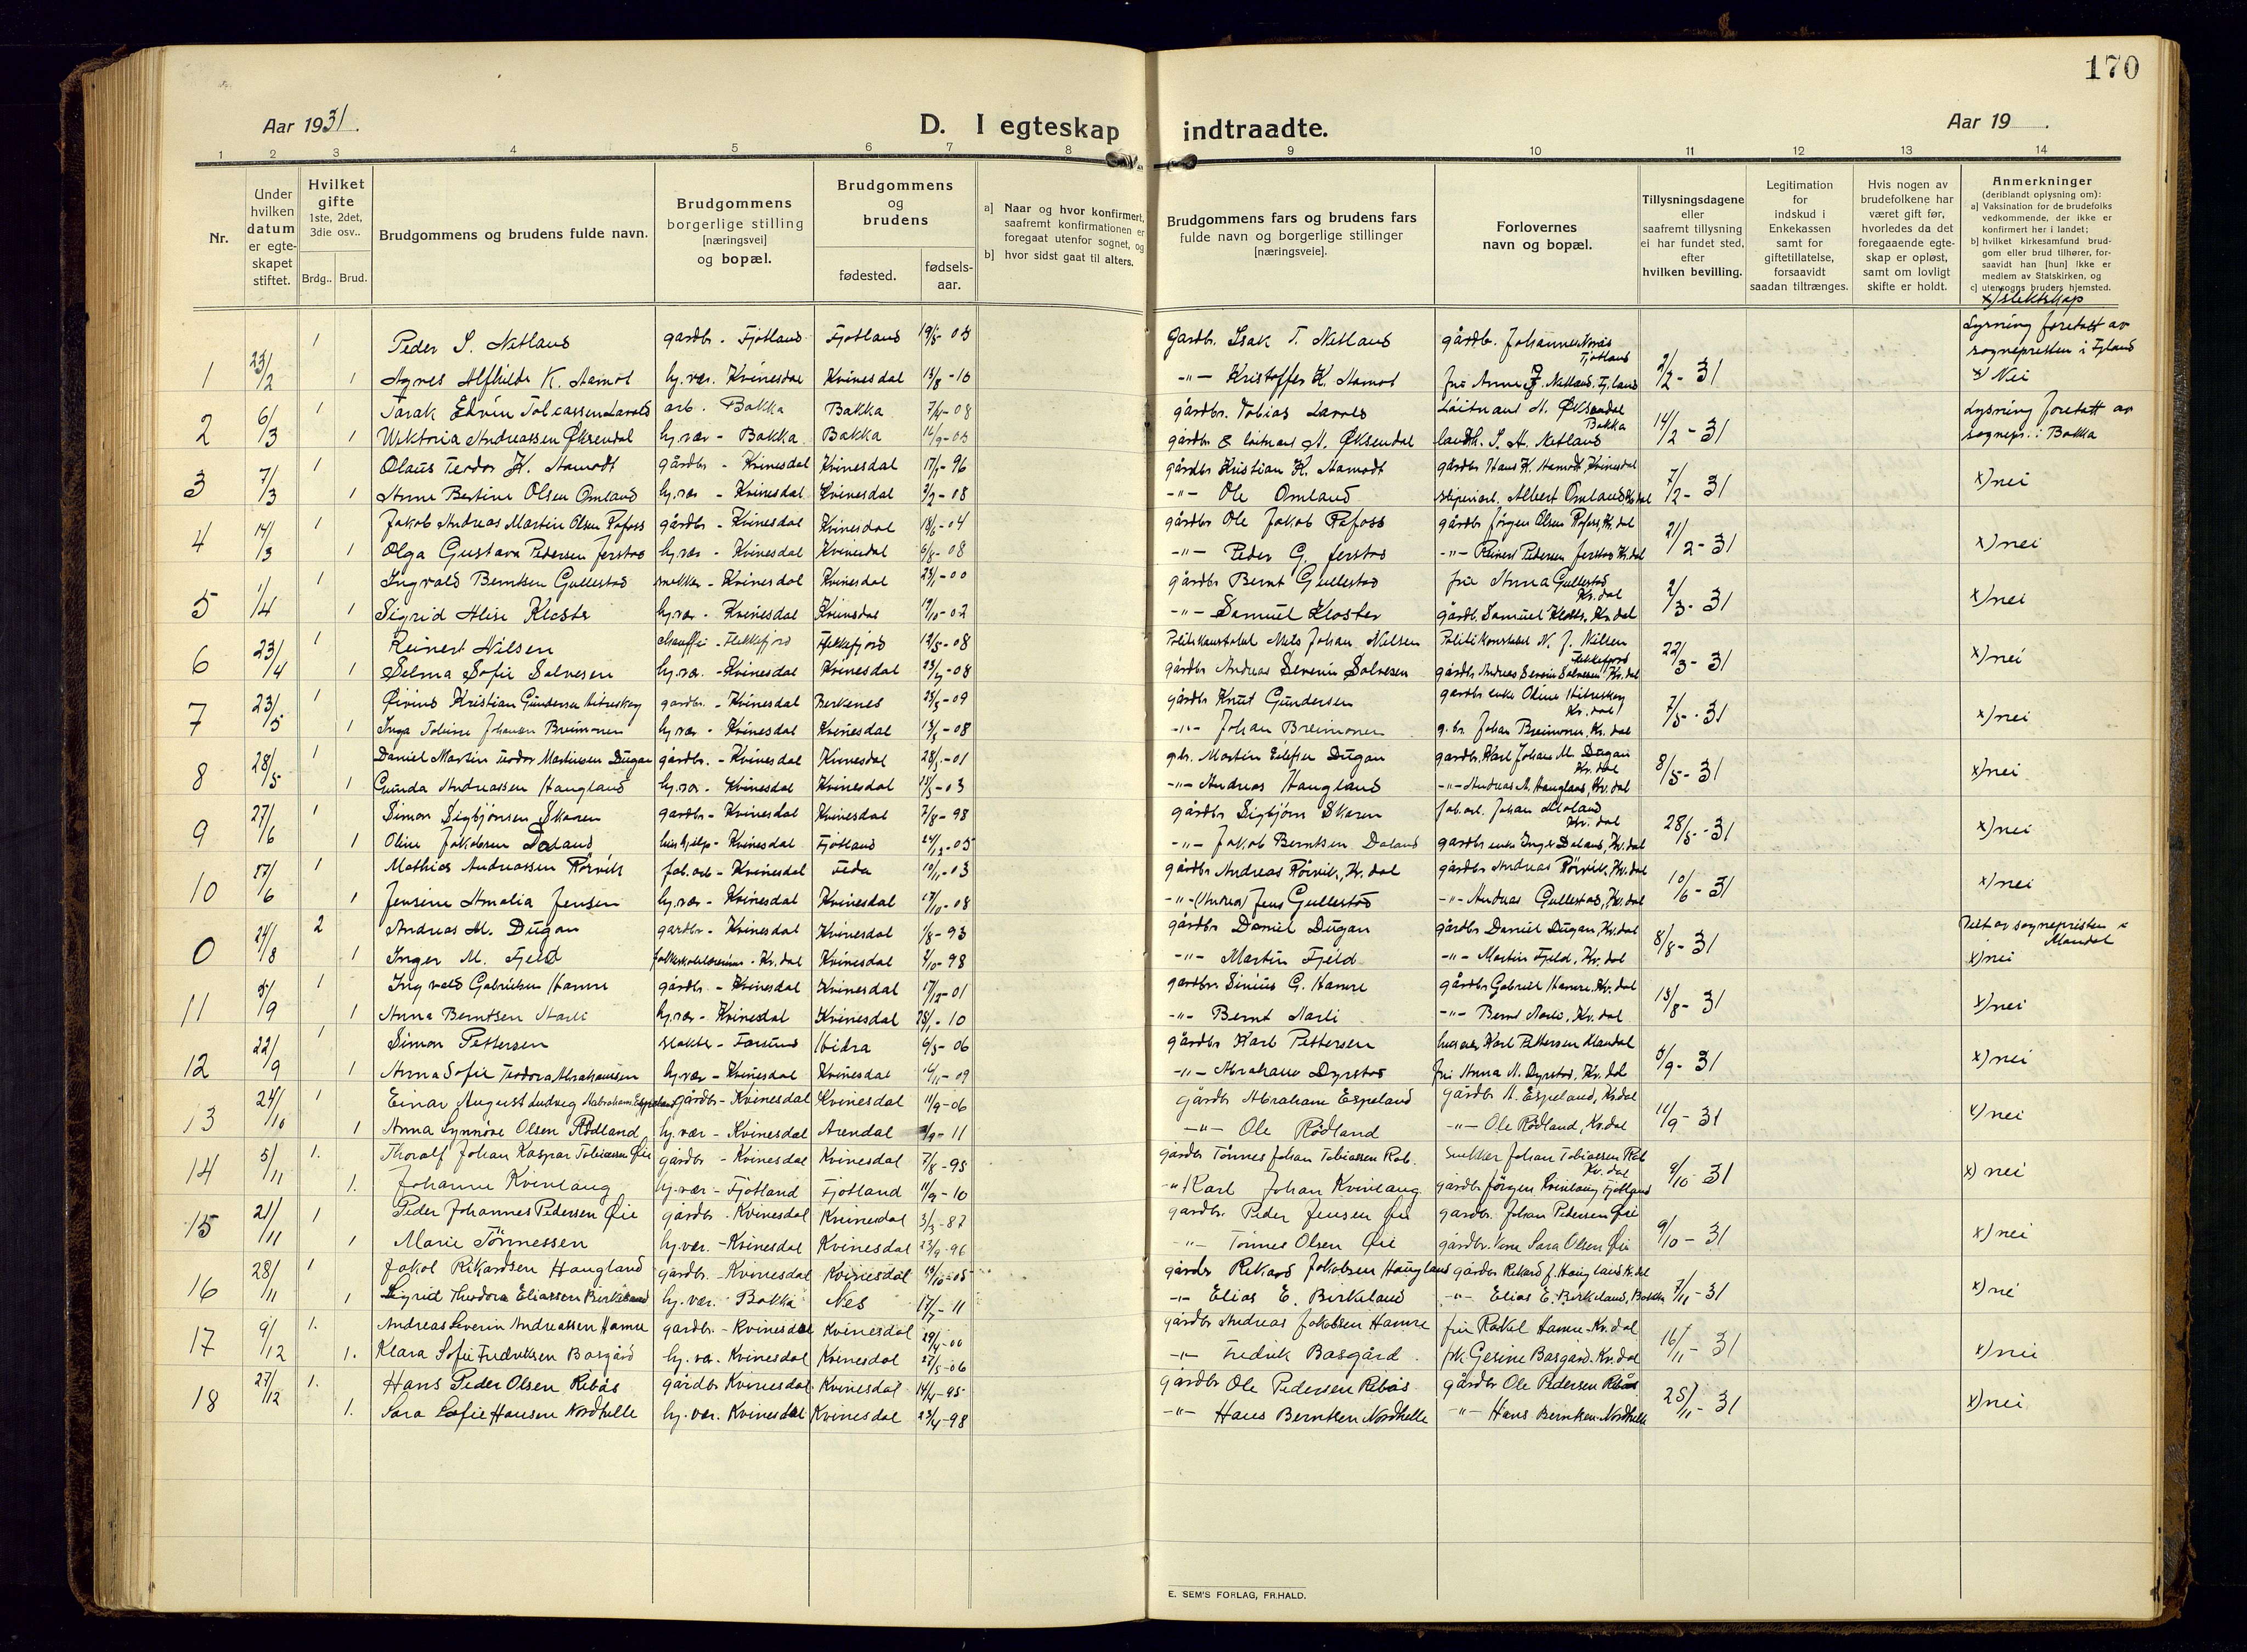 170
Aar 1931.
D. I egteskap indtraadte.
Aar 19
1 2 3 4 5 6 7 8 9 10 11 12 13 14
Nr.
Under hvilken datum er egteskapet stiftet.
Hvilket gifte 1ste, 2det, 3die osv..
Brdg.. Brud.
Brudgommens og brudens fulde navn.
Brudgommens borgerlige stilling [næringsvei] og bopæl.
Brudgommens og brudens
fødested. fødsels-aar.
a] Naar og hvor konfirmert, saafremt konfirmationen er foregaat utenfor sognet, og
b] hvor sidst gaat til alters.
Brudgommens fars og brudens fars fulde navn og borgerlige stillinger [næringsveie].
Forlovernes navn og bopæl.
Tillysningsdagene eller saafremt tillysning ei har fundet sted, efter hvilken bevilling.
Legitimation for indskud i Enkekassen samt for giftetillatelse, forsaavidt saadan tiltrænges.
Hvis nogen av brudefolkene har været gift før, hvorledes da det foregaaende egteskap er opløst, samt om lovligt skifte er holdt.
Anmerkninger (deriblandt oplysning om):
a] Vaksination for de brudefolks vedkommende, der ikke er konfirmert her i landet;
b] hvilket kirkesamfund brudgom eller brud tilhører, forsaavidt han [hun] ikke er medlem av Statskirken, og
c] utensogns bruders hjemsted.
x) slektskap
1 Peder I. Netland gardbr. - Fjotland Fjotland Gardbr. Isak T. Netland gårdb. Johannes Lysning foretatt av sognepresten i
1 23/2 1 Agnes Alfhilde K. Aamot hj.vær. Kvinesdal Kvinesdal 13/8-10 -"- Kristoffer K. Aamot 2/2-31 x) Nei
1 arb. Bakka Bakka 7/4-08 gårdbr. Tobias Lysning foretatt av
2 6/3 1 Viktoria Andreassen Øksendal hj.vær - Bakka Bakka Øksendal landh. S. A. Netland 14/2-31 sognepr. i Bakka
1 Olaus Teodor K. Aamodt gårdbr - Kvinesdal Kvinesdal 17/1-96 gårdbr Kristian K. Aamodt gårdbr Hans K. Aamodt, Kvinesdal
3 7/3 1 Anne Bertine Olsen Omland hj.vær - Kvinesdal Kvinesdal 2/2-08 -"- Ole Omland Albert Omland 7/2-31 x) nei
1 Jakob Andreas Martin Olsen Rafoss gårdbr - Kvinesdal Kvinesdal 18/6-04 gårdbr Ole Jakob Rafoss gårdbr Jørgen Olsen Rafoss, Kv.dal
4 14/3 1 Olga Gustava Pedersen Jerstad hj.vær - Kvinesdal Kvinesdal 6/8-08 -"- Peder G. Jerstad -"- Reinert Pedersen Jerstad Kv.dal 21/2-31 x) nei
1 Ingvald Berntsen Gullestad snekker - Kvinesdal Kvinesdal gårdbr Bernt Gullestad fru Anna Gullestad Kv.dal
5 1/4 1 Sigrid Alise Kloster hj.vær. - Kvinesdal Kvinesdal 19/10-02 -"- Samuel Kloster gårdb. Samuel Kloster, Kv.dal 2/3-31 x) nei
1 Reinert Nilsen - Flekkefjord Flekkefjord 12/5-08 Politikonstabel Nils Johan Nielsen Politikonstabel N. J. Nilsen Flekkefjord
6 23/4 1 Selma Sofie Salvesen hj.vær. - Kvinesdal Kvinesdal 23/7-08 gårdbr Andreas Severin Salvesen gårdbr Andreas Severin Salvesen Kv.dal 22/3-31 x) nei
1 Øivind Kristian Gundersen gardbr. - Kvinesdal Birkenes 25/3-09 gårdbr Knut Gundersen gardbr enke Oline Kv.dal
7 23/5 1 Inga Tobine Johansen Breimoen hj.vær - Kvinesdal Kvinesdal 13/3-08 -"- Johan Breimoen g.br. Johan Breimoen, Kv.dal 7/5-31 x) nei
1 Daniel Martin Teodor Martinsen Dugan gårdbr. - Kvinesdal Kvinesdal 28/3-01 gbr. Martin Dugan gardbr. Karl Johan M. Dugan Kv.dal
8 28/5 1 Gunda Andreassen Haugland hj.vær - Kvinesdal Kvinesdal -"- Andreas Haugland -"- Andreas A. Haugland, Kv.dal 8/5-31 x) nei
1 Simon Sigbjørnsen Skaren gardbr - Kvinesdal Kvinesdal 7/8-98 gårdbr Sigbjørn Skaren fab.arb. Johan Kv.dal
9 27/6 1 Oline Jakobsen Daland hushjelp - Kvinesdal Fjotland 24/12-05 -"- Jakob Berntsen Daland gardbr enke Daland, Kv.dal 28/5-31 x) nei
1 Mathias Andreassen Rørvik fab.arb - Kvinesdal Feda 10/11-03 gårdbr Andreas Rørvik, Kv.dal gårdbr Andreas Rørvik, Kv.dal
10 27/6 1 Jensine Amalia Jensen hj.vær - Kvinesdal Kvinesdal 17/10-08 -"- (Andreas) Jens Gullestad -"- Andreas Gullestad, Kv.dal 10/6-31 x) nei
2 Andreas M. Dugan gardbr - Kvinesdal Kvinesdal 1/8-93 gårdbr Daniel Dugan gårdbr Daniel Dugan, Kv.dal Viet av sognepresten i Mandal
0 24/8 1 Inger M. Fjeld folkeskolelærerinne - Kv.dal Kvinesdal 2/10-98 -"- Martin Fjeld -"- Martin Fjeld, Kv.dal 8/8-31 x) nei
1 Ingvald Gabrielsen Hamre gårdbr - Kvinesdal Kvinesdal 17/12-01 gardbr. Sinius G. Hamre gårdbr Gabriel Hamre, Kv.dal
11 5/9 1 Anna Berntsen Narli hj.vær - Kvinesdal Kvinesdal -"- Bernt Narli -"- Bernt Narli, Kv.dal 13/8-31 x) nei
1 Simon Pettersen slakter - Farsund Hidra 6/3-06 gårdbr Karl Pettersen Karl Pettersen Mandal
12 22/9 1 Anna Sofie Teodora Abrahamsen hj.vær - Kvinesdal Kvinesdal 16/11-09 -"- Abraham Dyrstad fru Anna A. Dyrstad, Kv.dal 5/9-31 x) nei
1 Einar August Ludvig Abrahams. Espeland gårdbr - Kvinesdal Kvinesdal 11/9-06 gårdbr Abraham Espeland gårdbr A. Espeland, Kv.dal
13 24/10 1 Anna Synnøve Olsen Rødland hj.vær - Kvinesdal Arendal -"- Ole Rødland -"- Ole Rødland, Kv.dal 11/9-31 x) nei
1. Thoralf Johan Kaspar Tobiassen Øie gårdbr - Kvinesdal Kvinesdal 7/8-95 gårdbr Tønnes Johan Tobiassen Rob. snekker Johan Tobiassen Rob Kv.dal
14 5/11 1. Johanne Kvinlaug hj.vær - Fjotland Fjotland 11/9-10 -"- Karl Johan Kvinlaug gårdbr Jørgen Kvinlaug Fjotland 9/10-31 x) nei
1 Peder Johannes Pedersen Øie gårdbr. - Kvinesdal Kvinesdal 3/3-87 gardbr. Peder Jensen Øie gardbr. Johan Pedersen Øie
15 21/11 1 Marie Tønnessen hj.vær. - Kvinesdal Kvinesdal 23/9-96 -"- Tønnes Olsen Øie gårdbr. kone Sara Olsen Øie 9/10-31 x) nei
1 Jakob Rikardsen Haugland gårdbr. - Kvinesdal Kvinesdal gårdbr Rikard Jakobsen Haugland gårdbr Rikard J. Haugland Kv.dal
16 28/11 1 Sigrid Theodora Eliassen Birkeland hj.vær. Bakka Nes 17/7-11 -"- Elias E. Birkeland -"- Elias E. Birkeland, Bakka 7/11-31 x) nei
1. Andreas Severin Andreassen Hamre gårdbr. - Kvinesdal Kvinesdal 29/4-00 gårdbr Andreas Jakobsen Hamre fru Rakel Hamre - Kv.dal
17 9/12 1. Klara Sofie Fredriksen Båsgård hj.vær. Kvinesdal Kvinesdal 27/5-06 -"- Fredrik Båsgård frk Gesine Båsgård - Kv.dal 16/11-31 x) nei
1. Hans Peder Olsen Ribås gårdbr Kvinesdal Kvinesdal 14/4-95 gårdbr Ole Pedersen Ribås gårdbr Ole Pedersen Ribås
18 27/12 1. Sara Sofie Hansen Nordhelle hj.vær. Kvinesdal Kvinesdal 23/4-98 -"- Hans Berntsen Nordhelle -"- Hans Berntsen Nordhelle 25/11-31 x) nei
E. SEM'S FORLAG, FR.HALD.